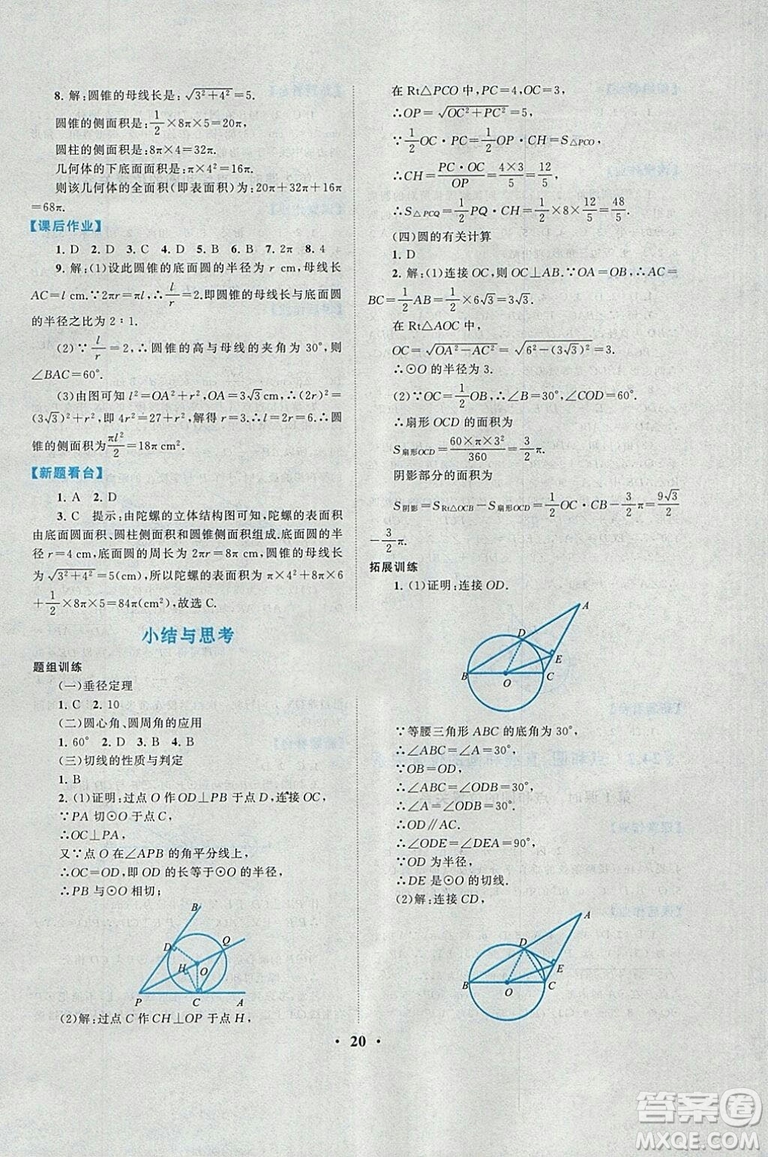 8. 解:圆锥的母线长是:√(3²+4²)=5.
圆锥的侧面积是:1/2×8π×5=20π,
圆柱的侧面积是:8π×4=32π.
几何体的下底面面积是:π×4²=16π.
则该几何体的全面积(即表面积)为:20π+32π+16π
=68π.
【课后作业】
1. D 2. D 3. C 4. D 5. B 6. D 7. 2π 8. 4
9. 解:(1)设此圆锥的底面圆的半径为 r cm,母线长
AC=l cm.∵2πr=πl,∴l/r=2.即圆锥的母线长与底面圆
的半径之比为 2∶1.
(2)∵l/r=2,∴圆锥的高与母线的夹角为 30°,则
∠BAC=60°.
(3)由图可知 l²=OA²+r²,OA=3√3 cm,∴(2r)²=
(3√3)²+r²,即 4r²=27+r²,解得 r=3.∴l=2r=6.∴圆
锥的侧面积为 πl²/2=18π cm².
【新题看台】
1. A 2. D
3. C 提示:由陀螺的立体结构图可知,陀螺的表面积
由底面圆面积、圆柱侧面积和圆锥侧面积组成.底面圆的半
径 r=4 cm,底面圆的周长为 2πr=8π(cm),圆锥的母线长为
√(3²+4²)=5(cm),所以陀螺的表面积为 π×4²+8π×6
+1/2×8π×5=84π(cm²),故选 C.
小结与思考
题组训练
(一)垂径定理
1. C 2. 10
(二)圆心角、圆周角的应用
1. 60° 2. D 3. B 4. B
(三)切线的性质与判定
1. B
2. (1)证明:过点 O 作 OD⊥PB 于点 D,连接 OC.
∵PA 切⊙O 于点 C,
∴OC⊥PA.
又∵点 O 在∠APB 的角平分线上,
∴OC=OD,即 OD 的长等于⊙O 的半径,
∴PB 与⊙O 相切;
B
D
Q
H
O
P
C
A
(2)解:过点 C 作 CH⊥OP 于点 H,
在 Rt△PCO 中,PC=4,OC=3,
∴OP=√(OC²+PC²)=5.
∵1/2OC·PC=1/2OP·CH=S△PCO,
∴CH=PC·OC/OP=4×3/5=12/5,
∴S△PCQ=1/2PQ·CH=1/2×8×12/5=48/5.
(四)圆的有关计算
1. D
2. 解:(1)连接 OC,则 OC⊥AB.∵OA=OB,∴AC=
BC=1/2AB=1/2×6√3=3√3.
在 Rt△AOC 中,
OC=√(OA²−AC²)=√(6²−(3√3)²)=3.
∴⊙O 的半径为 3.
(2)∵OC=1/2OB,∴∠B=30°,∠COD=60°.
∴扇形 OCD 的面积为
S扇形OCD=60×π×3²/360=3/2π.
阴影部分的面积为
S阴影=SRt△OCB−S扇形OCD=1/2OC·CB−3/2π=9√3/2
−3/2π.
拓展训练
1. (1)证明:连接 OD.
A
D
E
B
O
C
∵等腰三角形 ABC 的底角为 30°,
∴∠ABC=∠A=30°.
∵OB=OD,
∴∠ABC=∠ODB=30°,
∴∠A=∠ODB=30°,
∴OD∥AC,
∴∠ODE=∠DEA=90°,
∵OD 为半径,
∴DE 是⊙O 的切线.
(2)解:连接 CD,
A
D
E
B
O
C
• 20 •
答案卷
MXQE.COM